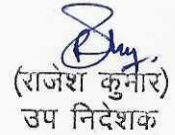 (राजेश कुमार)
उप निदेशक